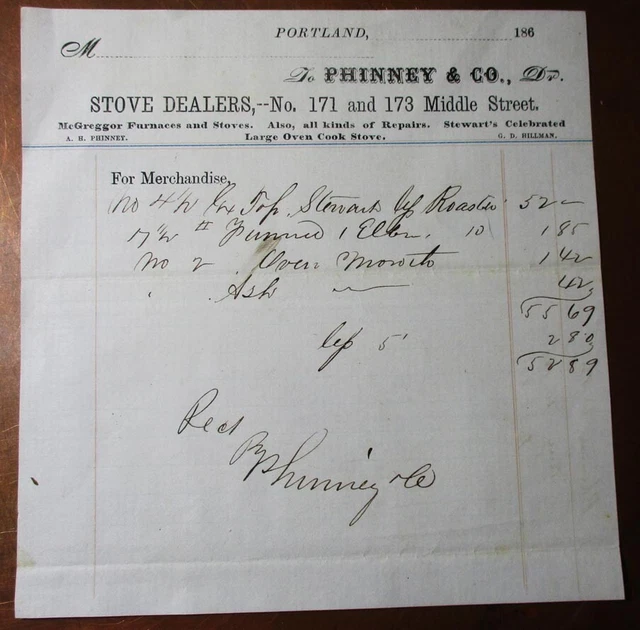 PORTLAND, 186
M
To PHINNEY & CO., Dr.
STOVE DEALERS,--No. 171 and 173 Middle Street.
McGreggor Furnaces and Stoves. Also, all kinds of Repairs. Stewart's Celebrated
A. H. PHINNEY. Large Oven Cook Stove. G. D. HILLMAN.
For Merchandise,
No 4 1/2 Ex Top Stewart Roaster 52 —
17 1/2 lb Funnel 1 Elbow 10 1 85
No 2 Oven 1 42
" Ash — 42
55 69
5 2 80
52 89
Recd
Phinney & Co